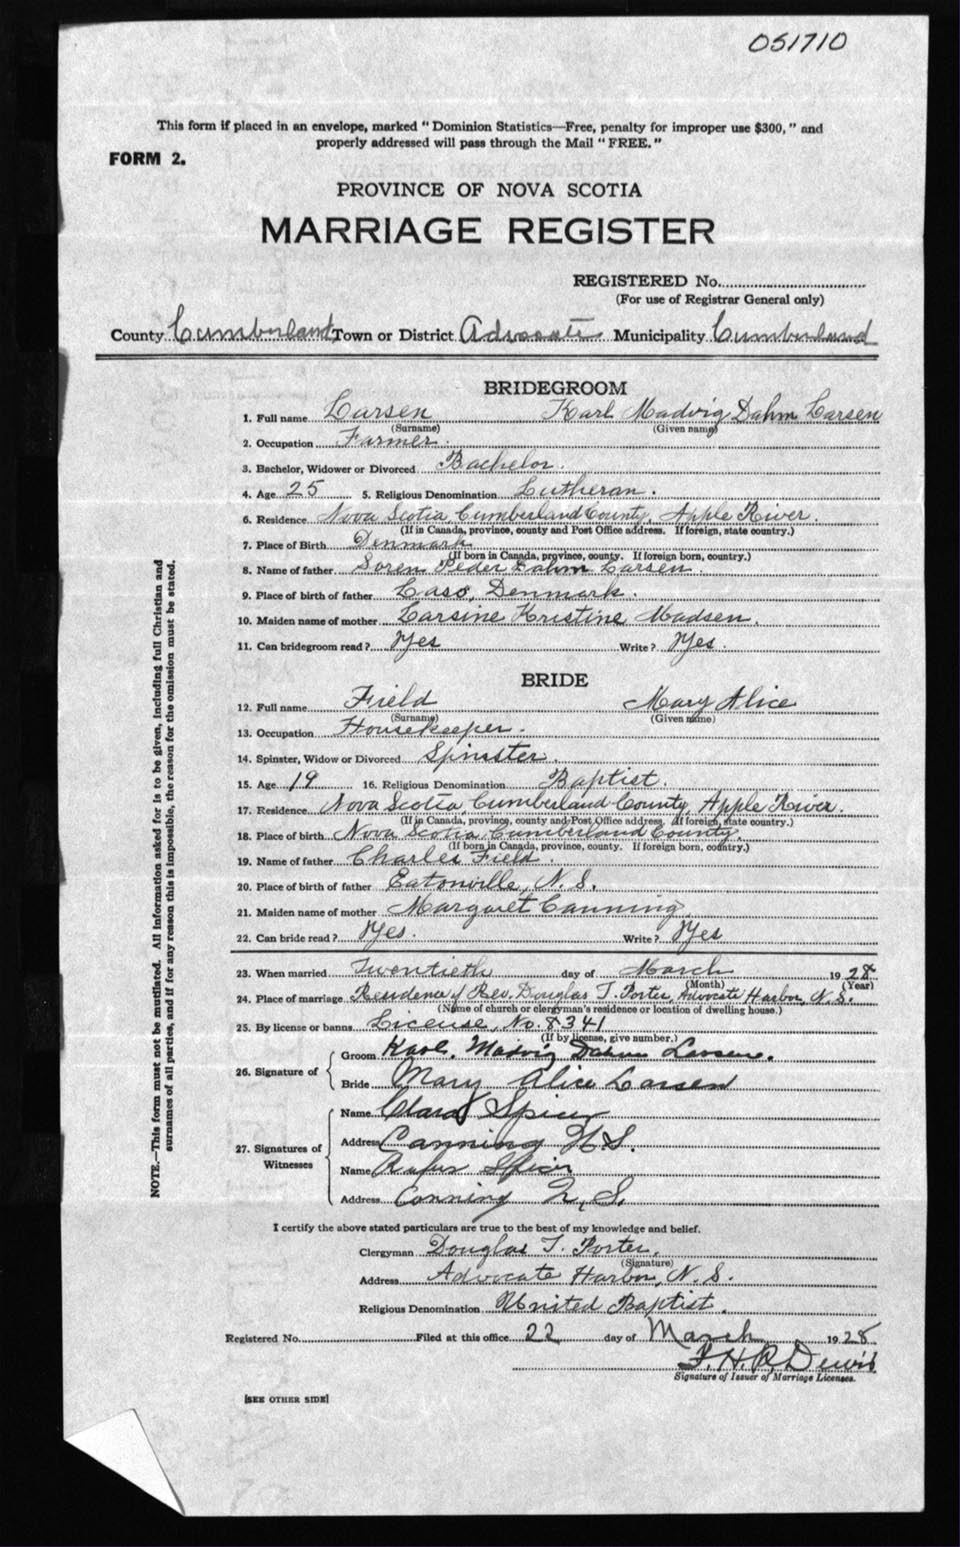 051710
This form if placed in an envelope, marked “ Dominion Statistics—Free, penalty for improper use $300, ” and
properly addressed will pass through the Mail “ FREE. ”
FORM 2.
PROVINCE OF NOVA SCOTIA
MARRIAGE REGISTER
REGISTERED No.
(For use of Registrar General only)
County Cumberland Town or District Advocate Municipality Cumberland
BRIDEGROOM
1. Full name Larsen Karl Madvig Dahm Larsen
(Surname) (Given name)
2. Occupation Farmer.
3. Bachelor, Widower or Divorced Bachelor.
4. Age 25 5. Religious Denomination Lutheran.
6. Residence Nova Scotia, Cumberland County, Apple River.
(If in Canada, province, county and Post Office address. If foreign, state country.)
7. Place of Birth Denmark
(If born in Canada, province, county. If foreign born, country.)
8. Name of father Soren Peder Dahm Larsen.
9. Place of birth of father Laso, Denmark.
10. Maiden name of mother Larsine Kristine Madsen.
11. Can bridegroom read? Yes Write? Yes.
BRIDE
12. Full name Field Mary Alice
(Surname) (Given name)
13. Occupation Housekeeper.
14. Spinster, Widow or Divorced Spinster.
15. Age 19 16. Religious Denomination Baptist.
17. Residence Nova Scotia, Cumberland County, Apple River.
(If in Canada, province, county and Post Office address. If foreign, state country.)
18. Place of birth Nova Scotia Cumberland County.
(If born in Canada, province, county. If foreign born, country.)
19. Name of father Charles Field.
20. Place of birth of father Eatonville, N.S.
21. Maiden name of mother Margaret Canning
22. Can bride read? Yes. Write? Yes
23. When married Twentieth day of March 1928
(Month) (Year)
24. Place of marriage Residence of Rev. Douglas T. Porter, Advocate Harbor, N.S.
(Name of church or clergyman's residence or location of dwelling house.)
25. By license or banns License, No. 8341
(If by license, give number.)
26. Signature of
Groom Karl. Madvig Dahm Larsen.
Bride Mary Alice Larsen
27. Signatures of
Witnesses
Name Clara Spicer
Address Canning N.S.
Name Rufus Spicer
Address Canning N.S.
I certify the above stated particulars are true to the best of my knowledge and belief.
Clergyman Douglas T. Porter.
(Signature)
Address Advocate Harbor, N.S.
Religious Denomination United Baptist.
Registered No. Filed at this office 22 day of March 1928
F.H.R. Dewis
Signature of Issuer of Marriage Licenses.
[SEE OTHER SIDE]
NOTE.—This form must not be mutilated. All information asked for is to be given, including full Christian and
surnames of all parties, and if for any reason this is impossible, the reason for the omission must be stated.